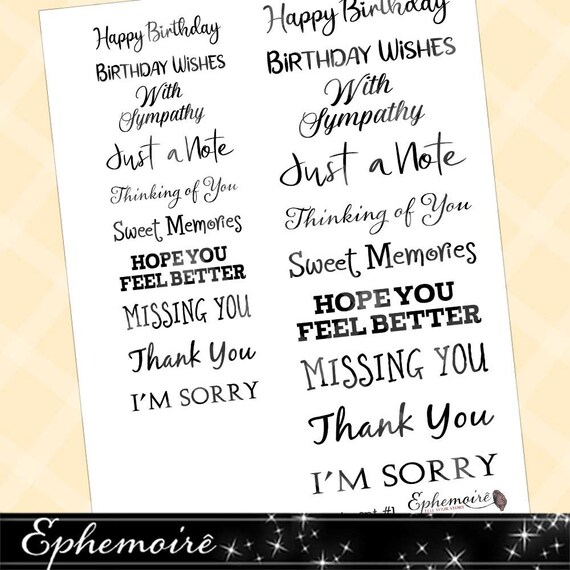 Happy Birthday
BIRTHDAY WISHES
With
Sympathy
Just a Note
Thinking of You
Sweet Memories
HOPE YOU
FEEL BETTER
MISSING YOU
Thank You
I'M SORRY
Happy Birthday
BIRTHDAY WISHES
With
Sympathy
Just a Note
Thinking of You
Sweet Memories
HOPE YOU
FEEL BETTER
MISSING YOU
Thank You
I'M SORRY
#1
Ephemoirê
Ephemoirê